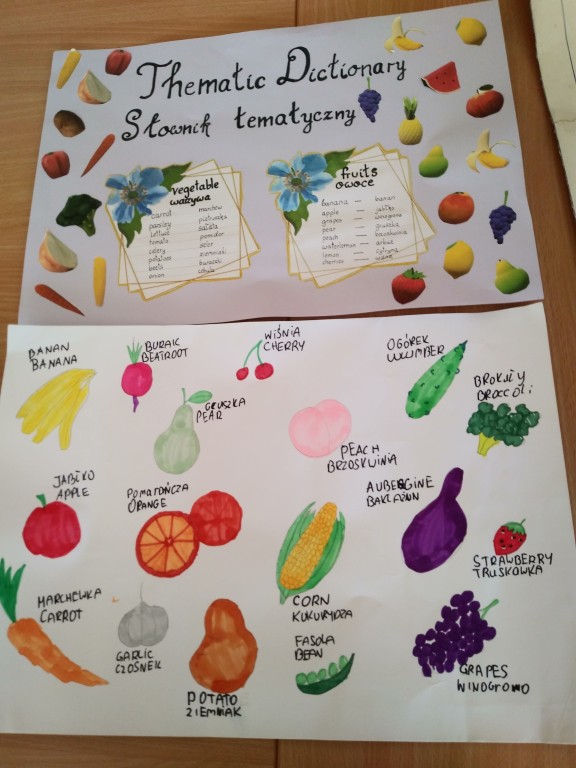 Thematic Dictionary
Słownik tematyczny
vegetable
ważywa
carrot marchew
parsley pietruszka
lettuce sałata
tomato pomidor
celery seler
potatoes ziemniaki
beets buraczki
onion cebula
fruits
owoce
banana — banan
apple — jabłko
grapes — winogrona
pear — gruszka
peach — brzoskwinia
watermelon — arbuz
lemon — cytryna
cherries — wiśnie
BANAN
BANANA
BURAK
BEATROOT
WIŚNIA
CHERRY
OGÓREK
BROKUŁY
BROCCOLI
GRUSZKA
PEAR
PEACH
BRZOSKWINIA
JABŁKO
APPLE
POMAROŃCZA
ORANGE
AUBERGINE
BAKŁAŻAN
STRAWBERRY
TRUSKAWKA
MARCHEWKA
CARROT
GARLIC
CZOSNEK
POTATO
ZIEMNIAK
CORN
KUKURYDZA
FASOLA
BEAN
GRAPES
WINOGRONO